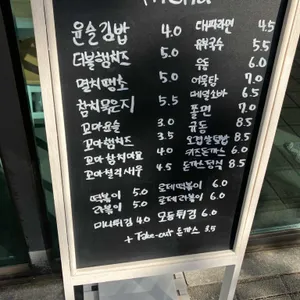 menu
윤슬김밥 4.0
더블햄치즈 5.0
멸치땡초 5.0
참치묵은지 5.5
꼬마윤슬 3.0
꼬마햄치즈 3.5
꼬마참치마요 4.0
꼬마칠리새우 4.5
떡볶이 5.0
라볶이 5.0
미니튀김 4.0
대파라면 4.5
유부국수 5.5
우동 6.0
어묵탕 7.0
메밀소바 6.5
쫄면 7.0
규동 8.5
오겹살덮밥 8.5
키즈돈까스 6.0
돈까스정식 8.5
로제떡볶이 6.0
로제라볶이 6.0
모둠튀김 6.0
+ Take-out 돈까스 3.5